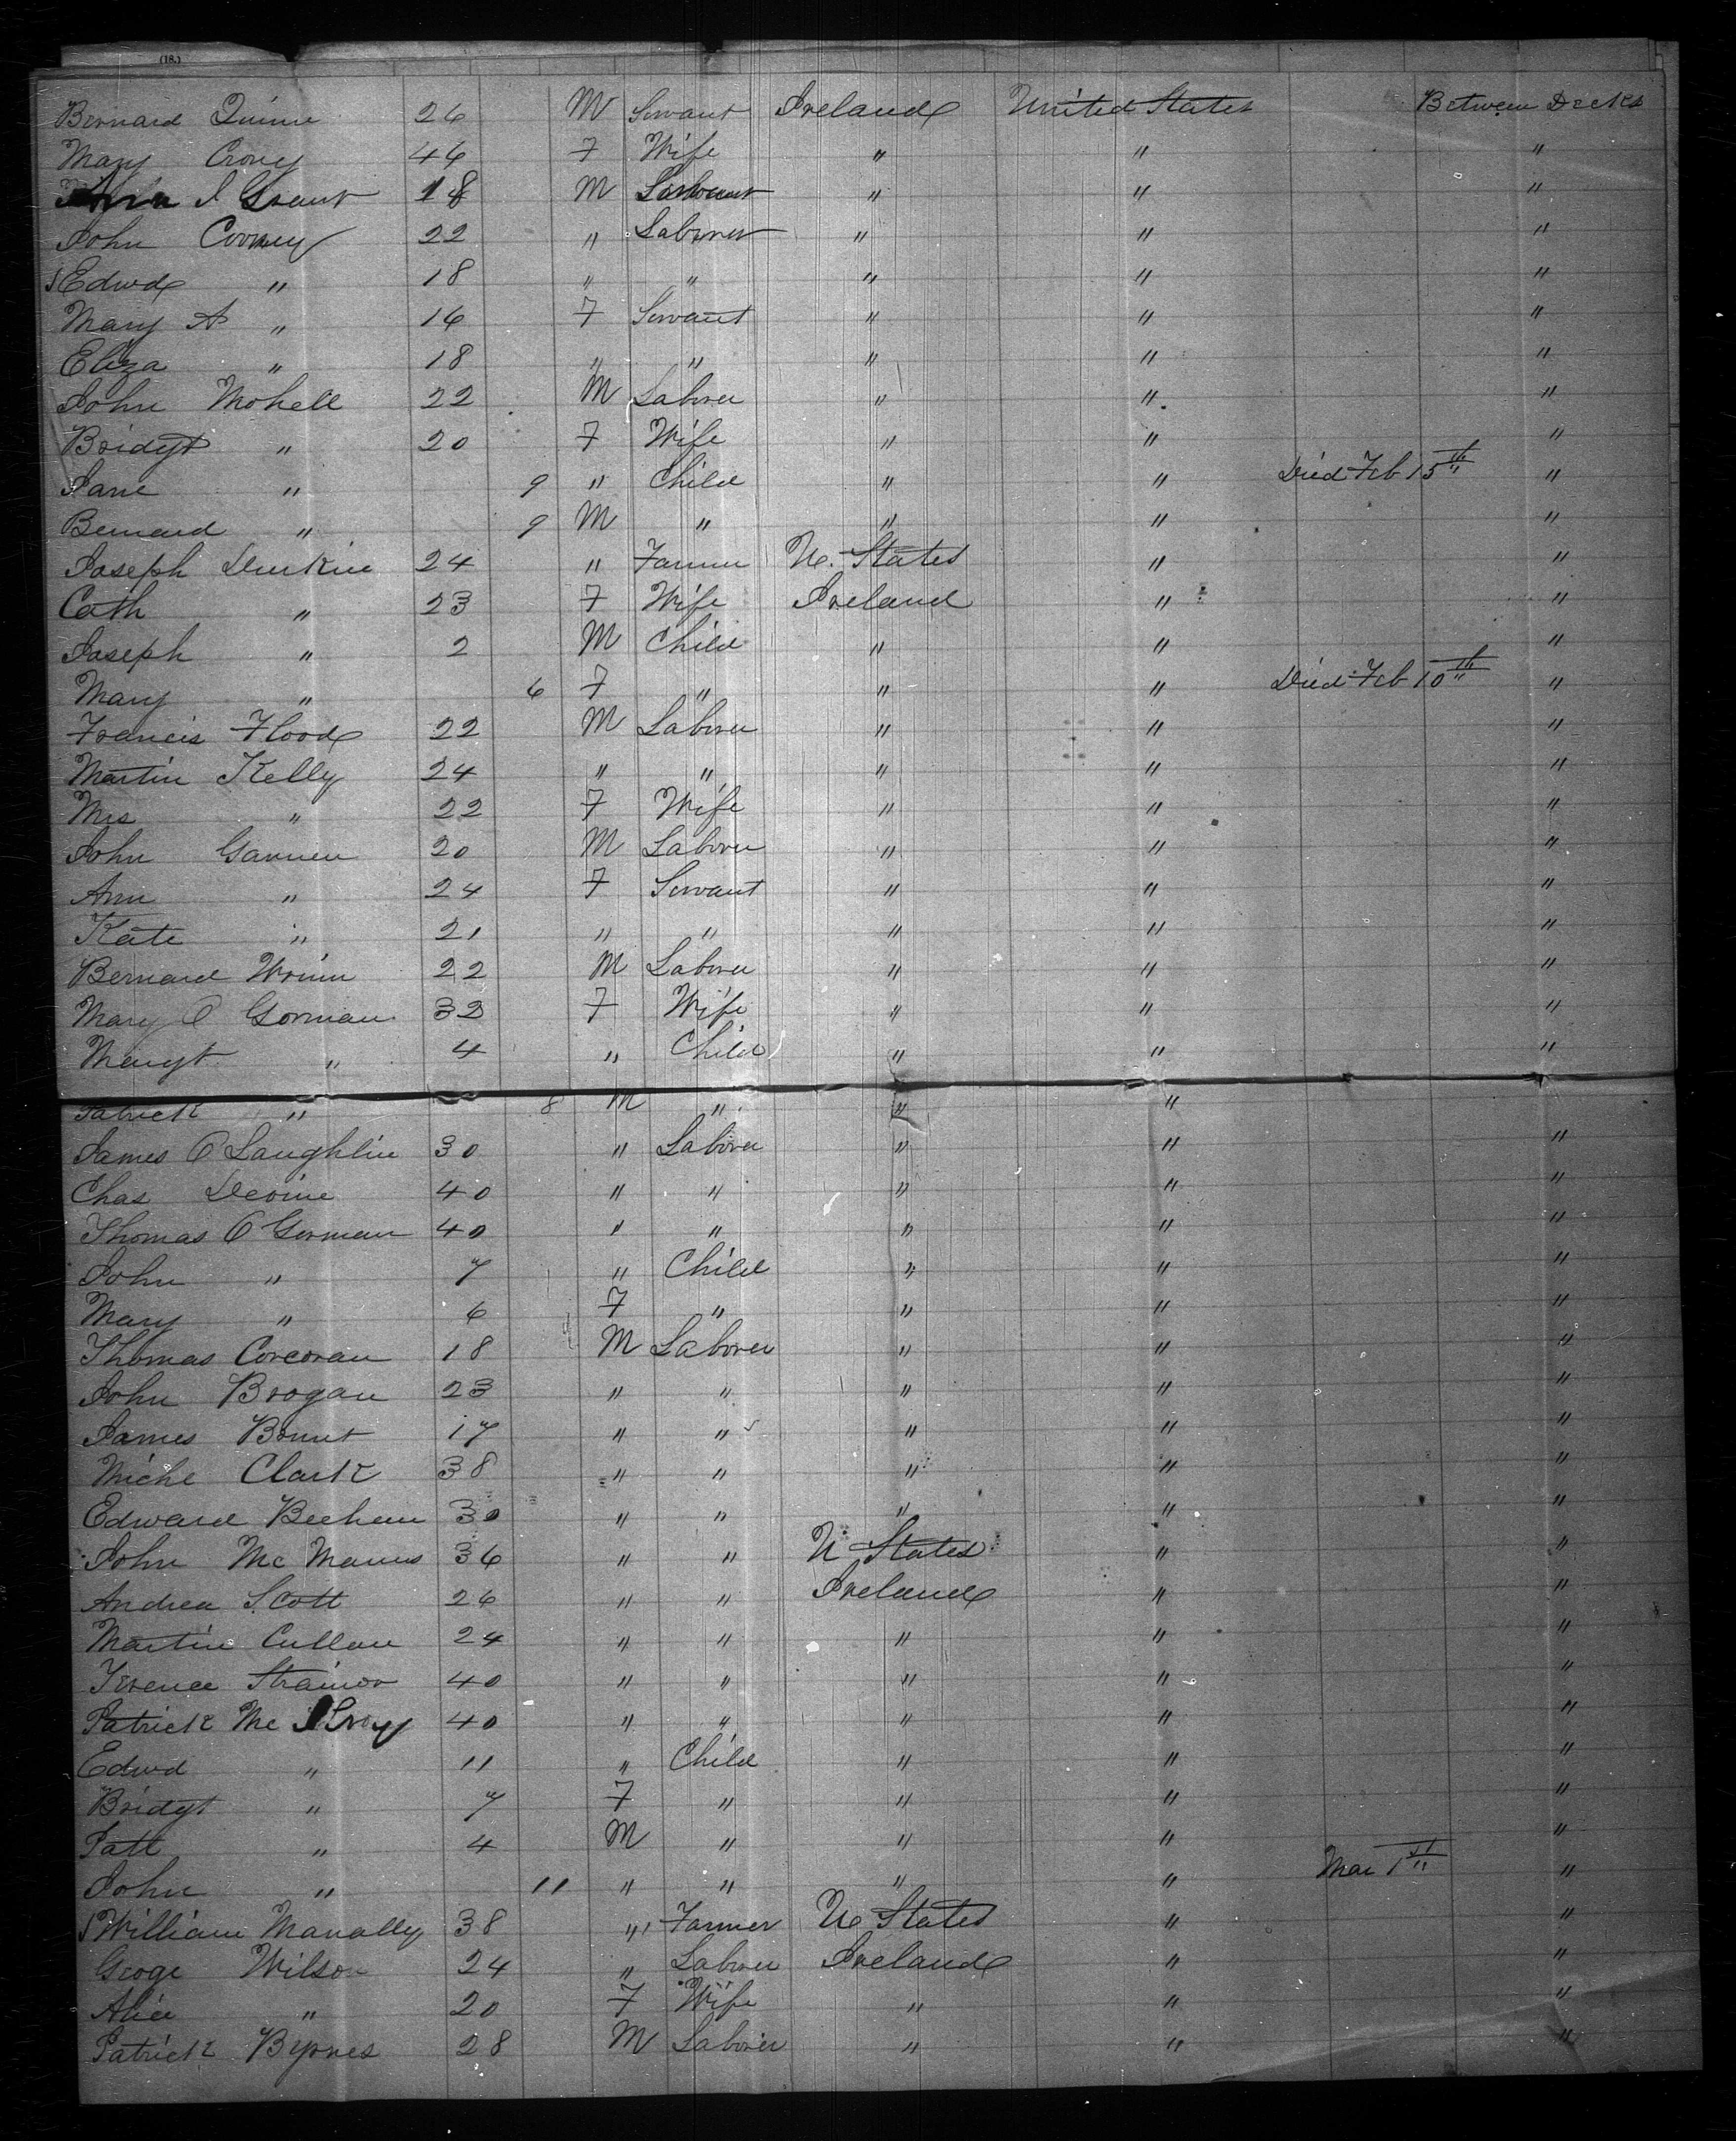 (18.)
Bernard Quinn 26 M Servant Ireland United States Between Decks
Mary Crony 46 F Wife " " "
I Grant 18 M " " "
John Cooney 22 " Laborer " " "
Edwd " 18 " " " " "
Mary A " 16 F Servant " " "
Eliza " 18 " " " " "
John Mohell 22 M Laborer " " "
Bridgt " 20 F Wife " " "
Jane " 9 " Child " " Died Feb 15th "
Bernard " 9 M " " " "
Joseph Durkin 24 " Farmer U. States " "
Cath " 23 F Wife Ireland " "
Joseph " 2 M Child " " "
Mary " 6 F " " " Died Feb 10th "
Francis Flood 22 M Laborer " " "
Martin Kelly 24 " " " " "
Mrs " 22 F Wife " " "
John Gannen 20 M Laborer " " "
Ann " 24 F Servant " " "
Kate " 21 " " " " "
Bernard Wrinn 22 M Laborer " " "
Mary O Gorman 32 F Wife " " "
Margt " 4 " Child " " "
Patrick " 8 M " " "
James O Laughlin 30 " Laborer " " "
Chas Devine 40 " " " " "
Thomas O Gorman 40 " " " " "
John " 7 " Child " " "
Mary " 6 F " " " "
Thomas Corcoran 18 M Laborer " " "
John Brogan 23 " " " " "
James 17 " " " " "
Miche Clark 38 " " " " "
Edward Beehan 30 " " " " "
John Mc Manus 36 " " U States " "
Andrew Scott 26 " " Ireland " "
Martin Cullan 24 " " " " "
Terence Strainor 40 " " " " "
Patrick Mc Ilroy 40 " " " " "
Edwd " 11 " Child " " "
Bridgt " 7 F " " " "
Patt " 4 M " " " "
John " 11 " " " " Mar 1st "
William Manally 38 " Farmer U States " "
George Wilson 24 " Laborer Ireland " "
Alice " 20 F Wife " " "
Patrick Byrnes 28 M Laborer " " "